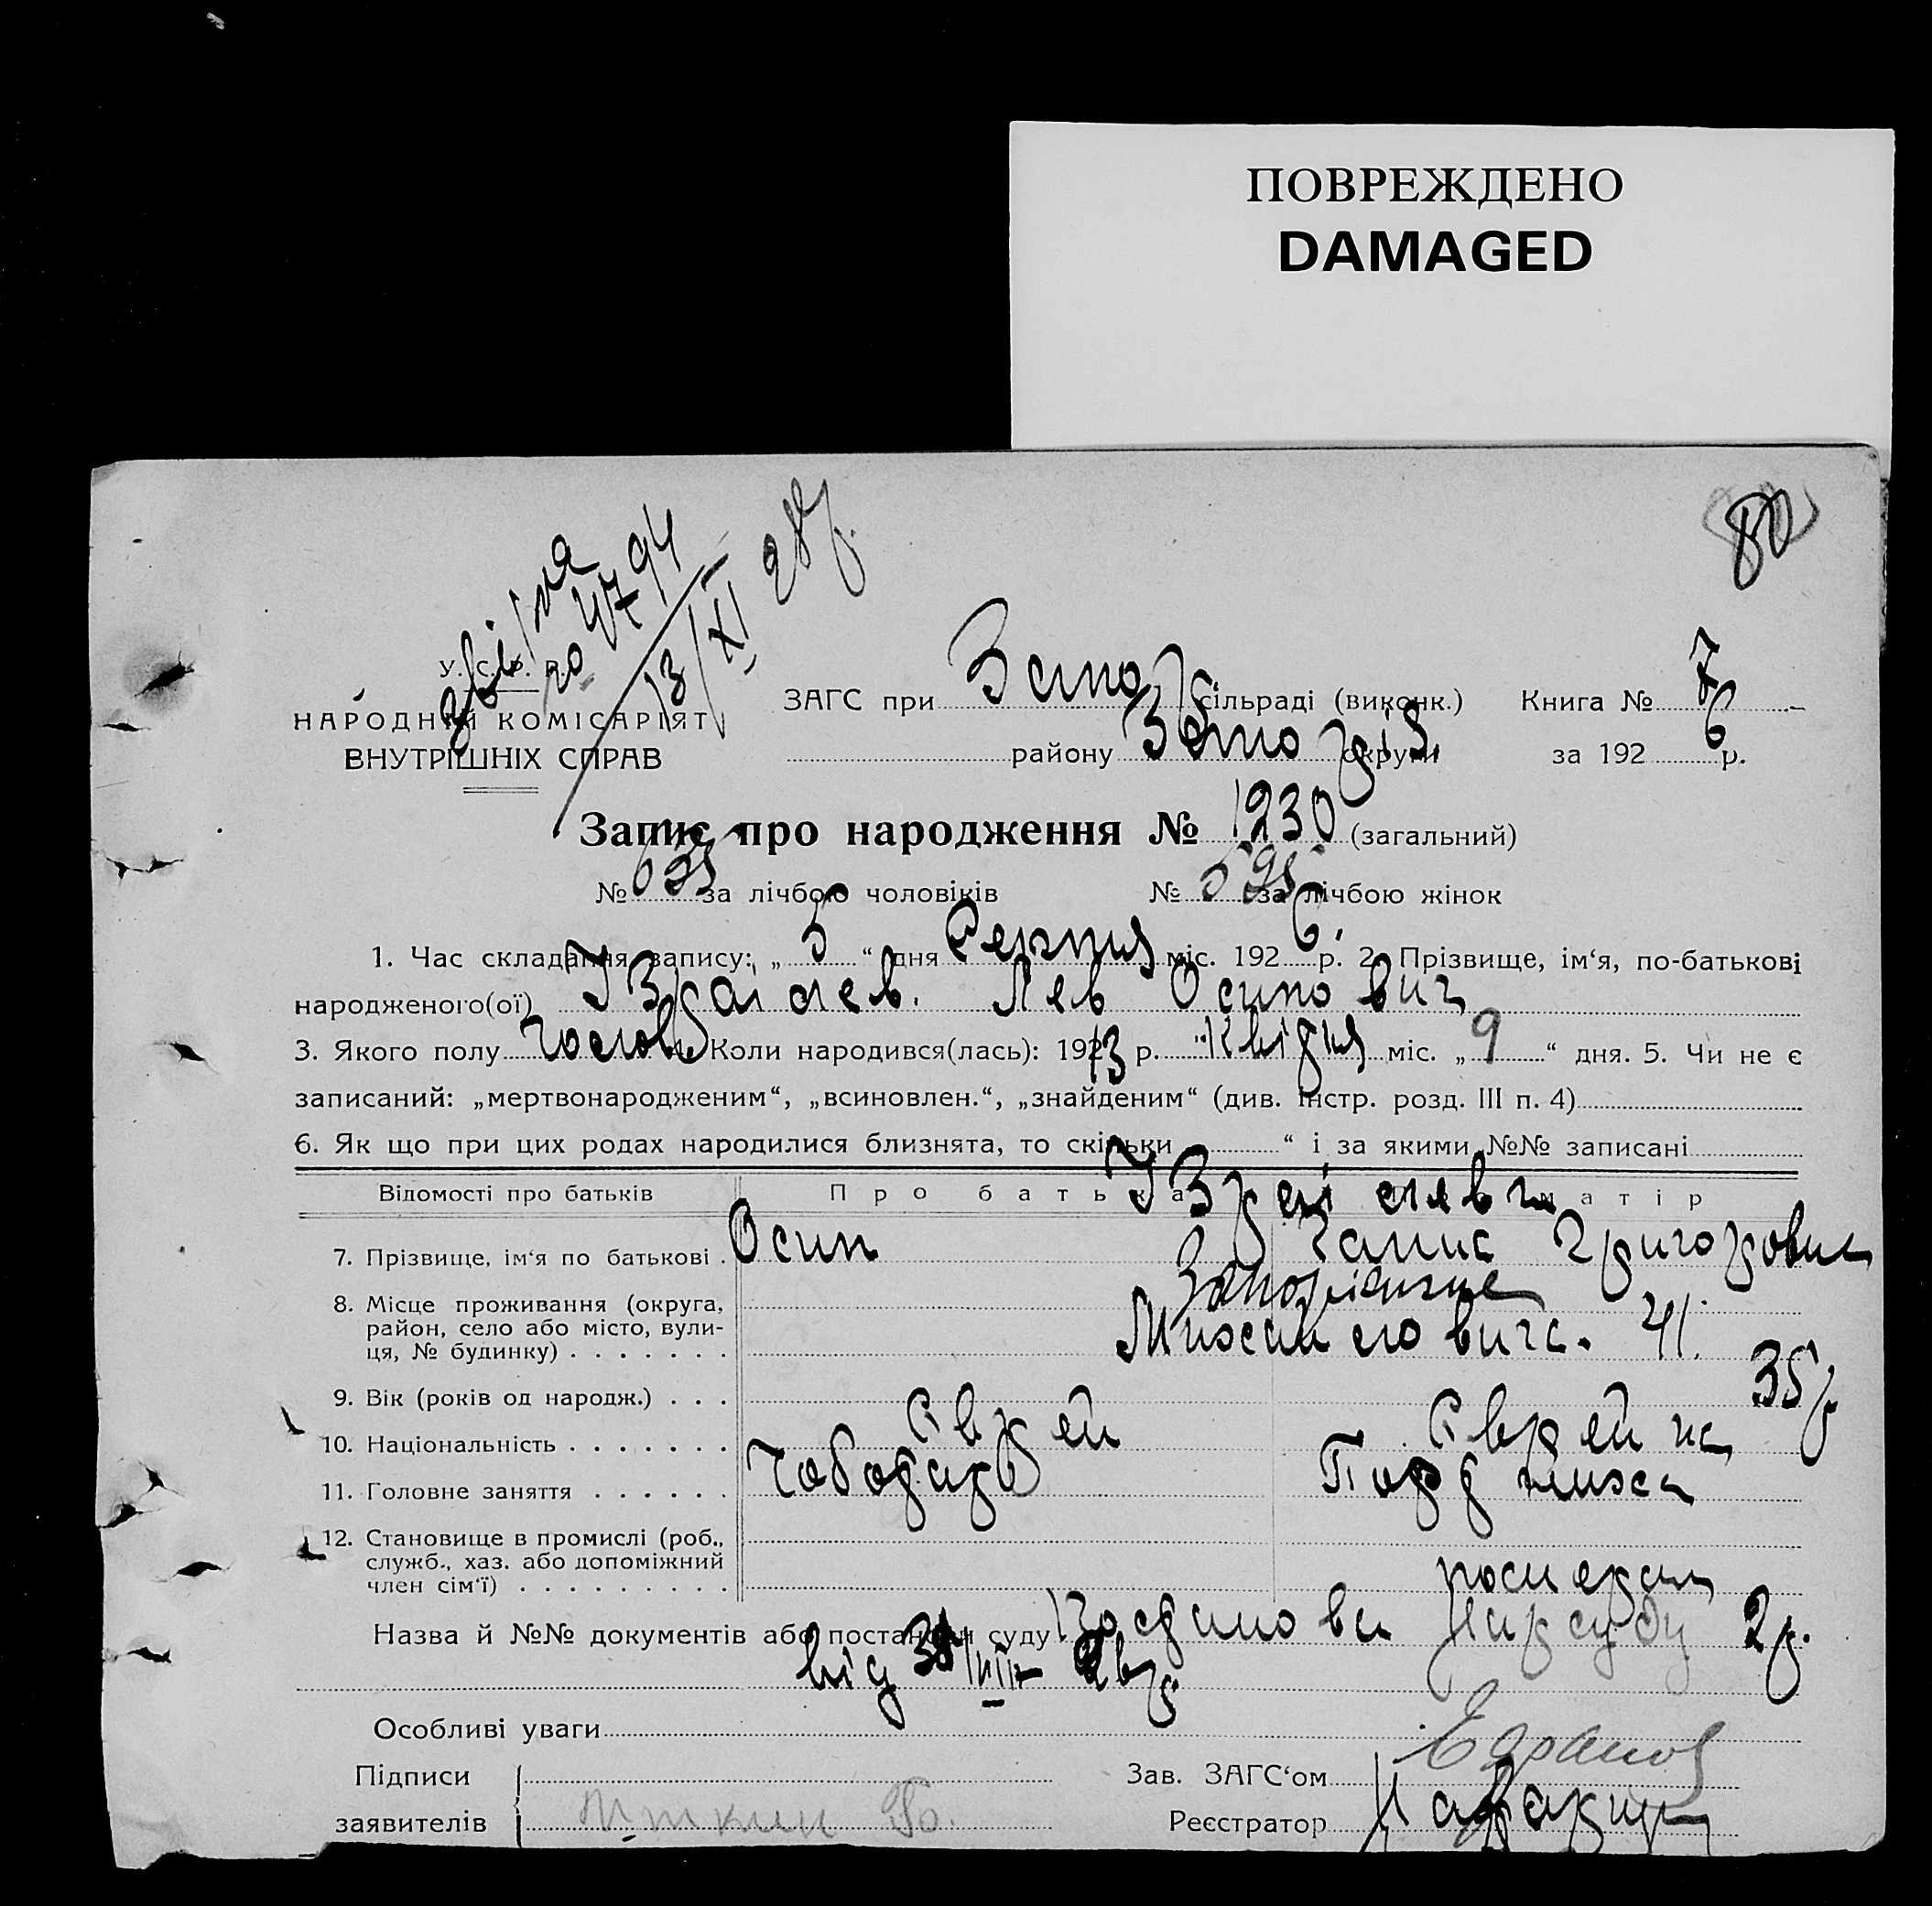 ПОВРЕЖДЕНО
DAMAGED
80
по 4794
13/XI 28р.
У. С. Р. Р.
НАРОДНІЙ КОМІСАРІЯТ
ВНУТРІШНІХ СПРАВ
ЗАГС при Запор сільраді (виконк.) Книга № 7
району Запоріз. округи за 192 6 р.
Запис про народження № 1230 (загальний)
№ 635 за лічбою чоловіків № 595 за лічбою жінок
1. Час складання запису: „ 5 “ дня Серпня міс. 192 6 р. 2. Прізвище, ім‘я, по-батькові
народженого(ої) Ізраілев. Лев Осипович
3. Якого полу чолов 4. Коли народився(лась): 1913 р. Квідня міс. „ 9 “ дня. 5. Чи не є
записаний: „мертвонародженим“, „всиновлен.“, „знайденим“ (див. інстр. розд. III п. 4)
6. Як що при цих родах народилися близнята, то скільки “ і за якими №№ записані
Відомості про батьків Про батька матір
Ізраілеви
7. Прізвище, ім‘я по батькові . Осип Ганна Григоровна
8. Місце проживання (округа,
район, село або місто, вули-
ця, № будинку) . . . . . . .
Запоріжже
Михайловича. 41.
9. Вік (років од народж.) . . . 35р
10. Національність . . . . . . . Єврей Єврейка
11. Головне заняття . . . . . . Чободарь
12. Становище в промислі (роб.,
служб., хаз. або допоміжний
член сім‘ї) . . . . . . . . .
Назва й №№ документів або постанови суду Постанова Нарсуду 2р.
від /VII- 26р.
Особливі уваги
Підписи
заявителів
Зав. ЗАГС‘ом
Реєстратор